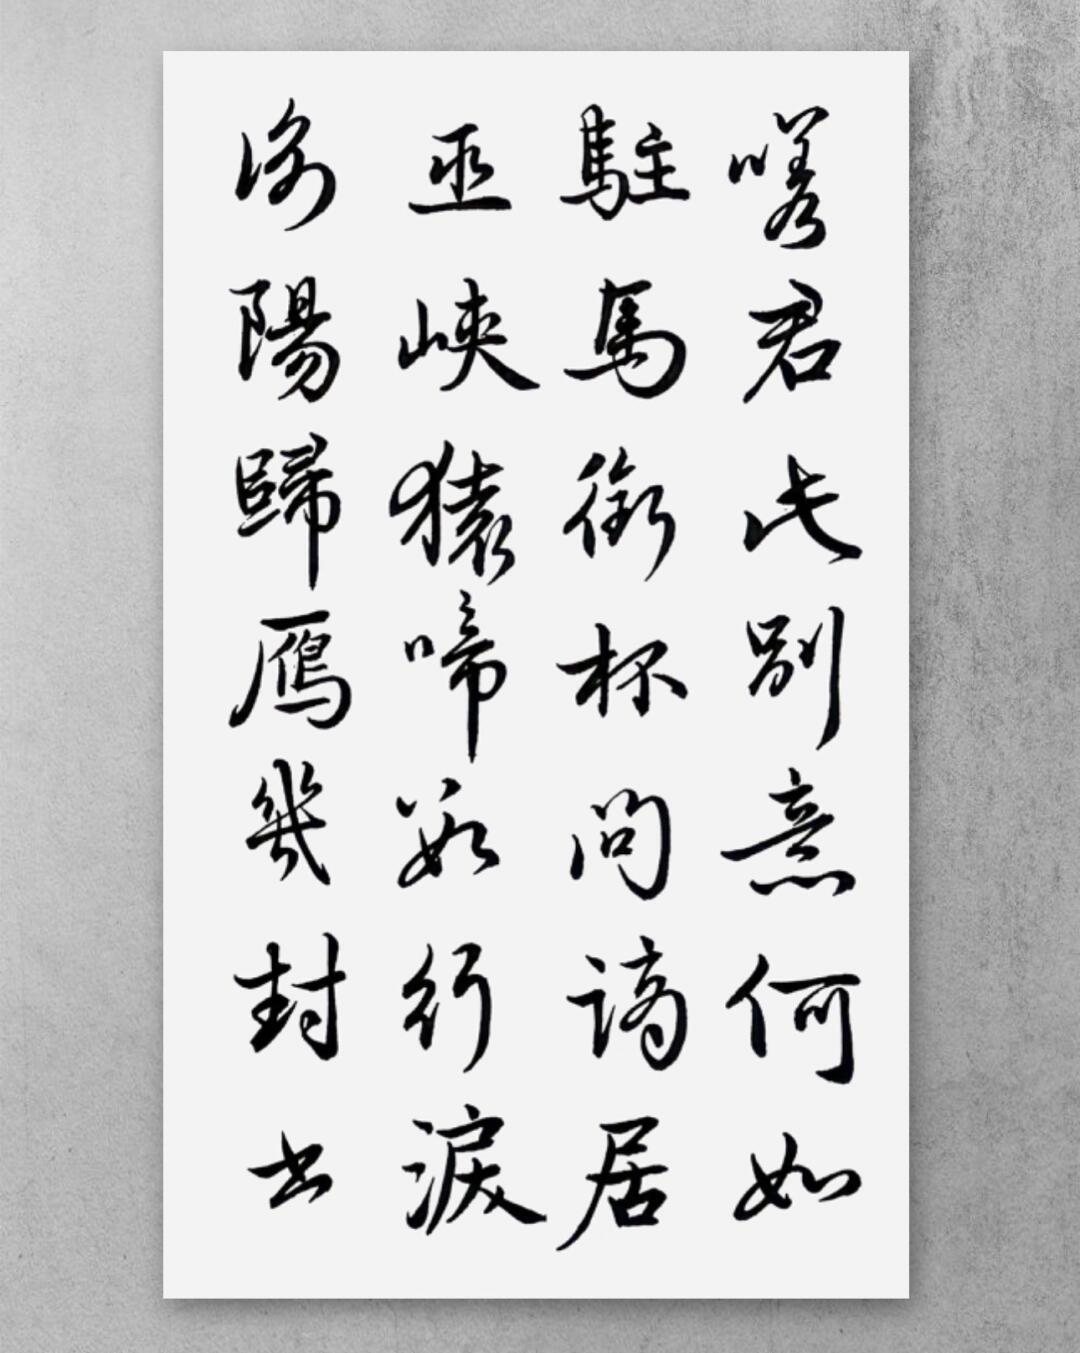 嗟君此別意何如
駐馬銜杯問謫居
巫峽猿啼數行淚
衡陽歸鴈幾封書